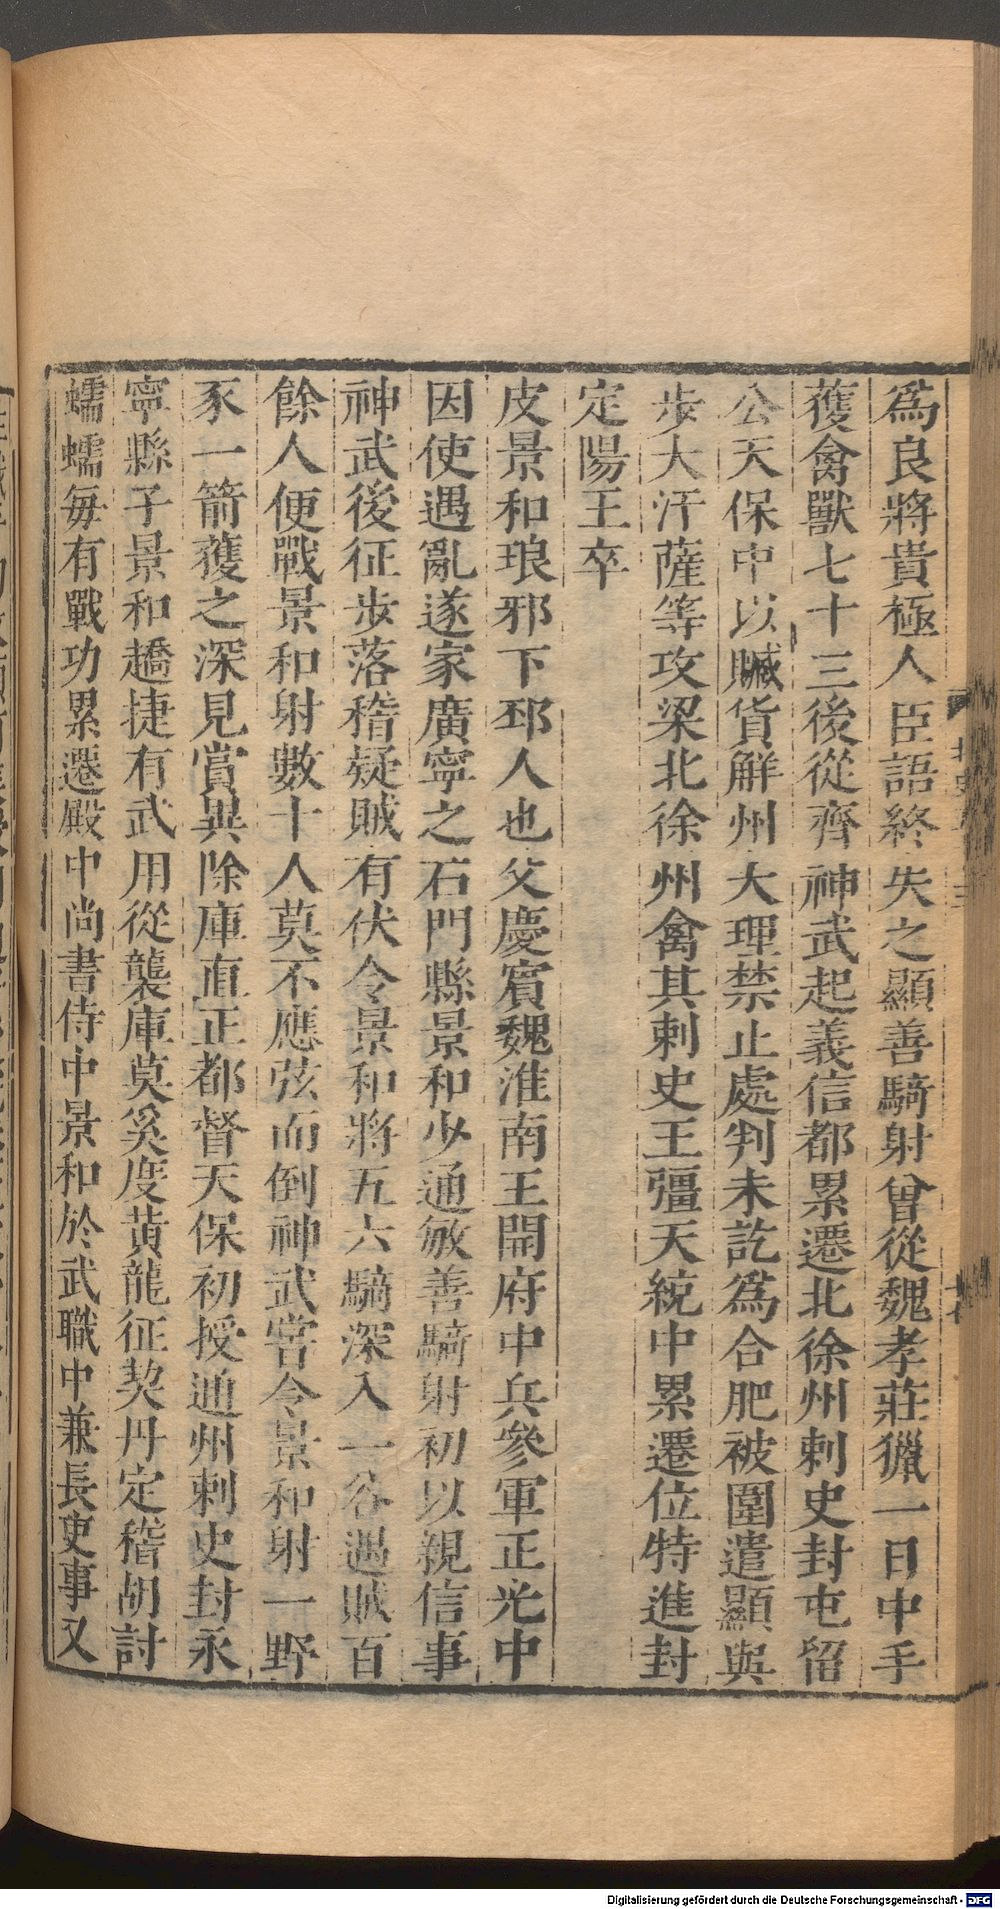 爲良將貴極人臣語終失之顯善騎射曾從魏孝莊獵一日中手
獲禽獸七十三後從齊神武起義信都累遷北徐州刺史封屯留
公天保中以贓貨解州大理禁止處判未訖爲合肥被圍遣顯與
步大汗薩等攻梁北徐州禽其刺史王彊天統中累遷位特進封
定陽王卒
皮景和琅邪下邳人也父慶賓魏淮南王開府中兵參軍正光中
因使遇亂遂家廣寧之石門縣景和少通敏善騎射初以親信事
神武後征步落稽疑賊有伏令景和將五六騎深入一谷遇賊百
餘人便戰景和射數十人莫不應弦而倒神武嘗令景和射一野
豕一箭獲之深見賞異除庫直正都督天保初授通州刺史封永
寧縣子景和趫捷有武用從襲庫莫奚度黃龍征契丹定稽胡討
蠕蠕每有戰功累遷殿中尚書侍中景和於武職中兼長吏事又
Digitalisierung gefördert durch die Deutsche Forschungsgemeinschaft - DFG